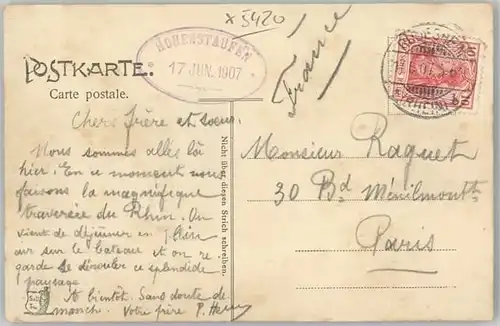 x 5420
HOHENSTAUFEN
17 JUN. 1907
France
POSTKARTE.
Carte postale.
Chers frère et soeur
Nous sommes allés là
hier. En ce moment nous
faisons la magnifique
traversée du Rhin. On
vient de déjeuner en plein
air sur le bateau et on re
garde se dérouler ce splendide
paysage
A bientôt. Sans doute di
manch. Votre frère P.
Nicht über diesen Strich schreiben.
Monsieur Raguet
30 Bd Ménilmontt
Paris